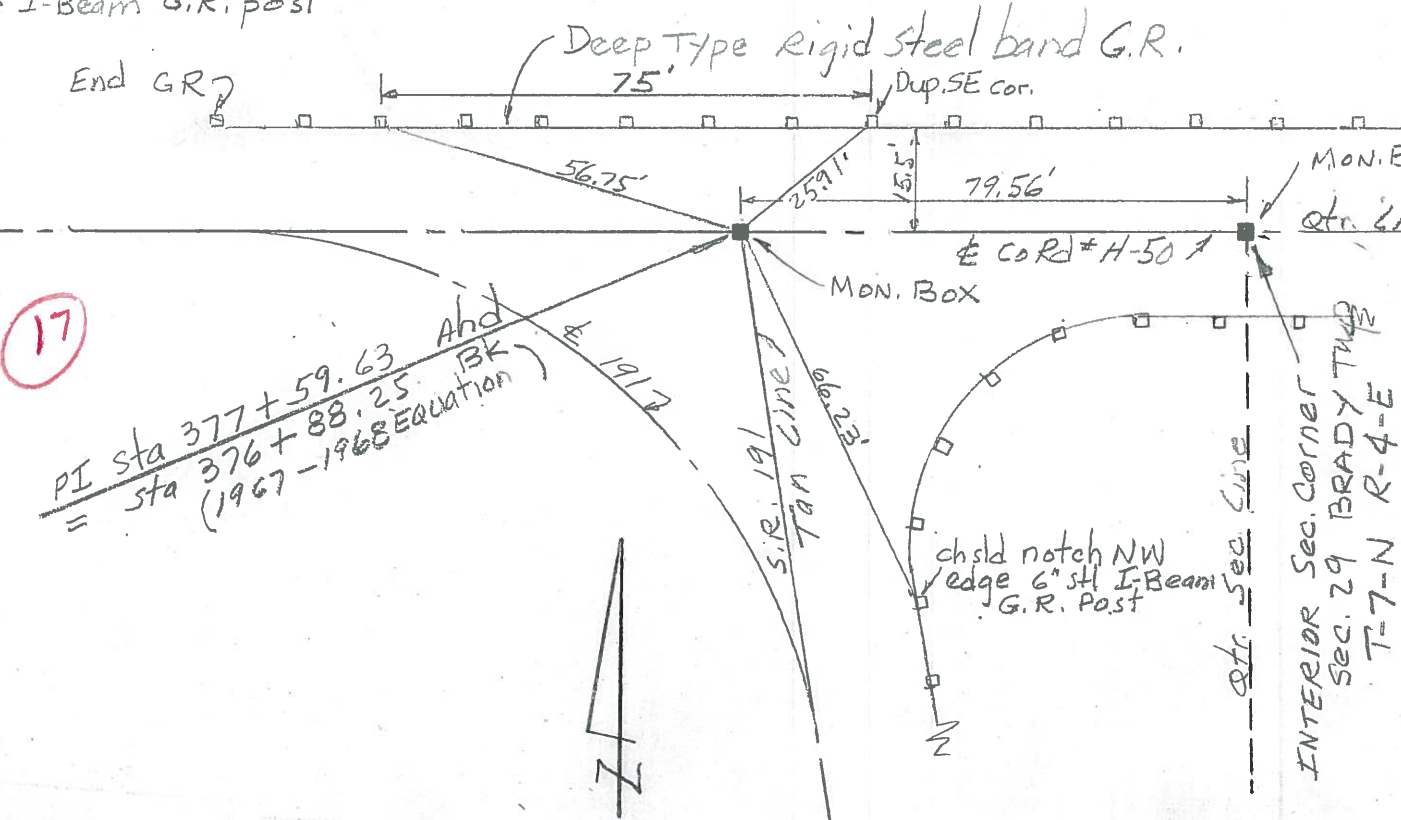 I-Beam G.R. post
Deep Type Rigid Steel band G.R.
End GR
75'
Dup. SE cor.
56.75'
25.91'
15.5'
79.56'
MON. B
Qtr.
℄ Co Rd # H-50
MON. BOX
17
PI sta 377+59.63 Ahd
= sta 376+88.25 BK
(1967-1968 Equation)
℄ 191
S.R. 191
Tan Line
66.23'
chsld notch NW
edge 6" stl I-Beam
G.R. Post
Qtr. Sec. Line
INTERIOR Sec. Corner
Sec. 29 BRADY Twp
T-7-N R-4-E
N